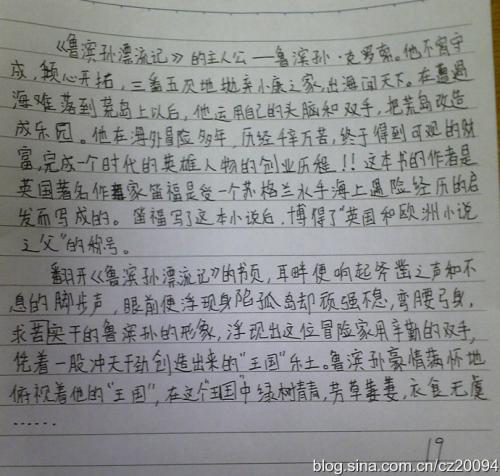 《鲁滨孙漂流记》的主人公——鲁滨孙·克罗索。他不富守
成,倾心开拓,三番五次地抛弃小康之家,出海闯天下。在遭遇
海难落到荒岛上以后,他运用自己的头脑和双手,把荒岛改造
成乐园。他在海外冒险多年,历经千辛万苦,终于得到可观的财
富,完成一个时代的英雄人物的创业历程!!这本书的作者是
英国著名作家笛福是受一个苏格兰水手海上遇险经历的启
发而写成的。笛福写了这本小说后,博得了“英国和欧洲小说
之父”的称号。
翻开《鲁滨孙漂流记》的书页,耳畔便响起斧凿之声和不
息的脚步声,眼前便浮现身陷孤岛却顽强不息,弯腰弓身,
求苦实干的鲁滨孙的形象,浮现出这位冒险家用辛勤的双手,
凭着一股冲天干劲创造出来的“王国”乐土。鲁滨孙豪情满怀地
俯视着他的“王国”,在这个“王国”中绿树青青,芳草萋萋,衣食无虞
……
19
blog.sina.com.cn/cz20094